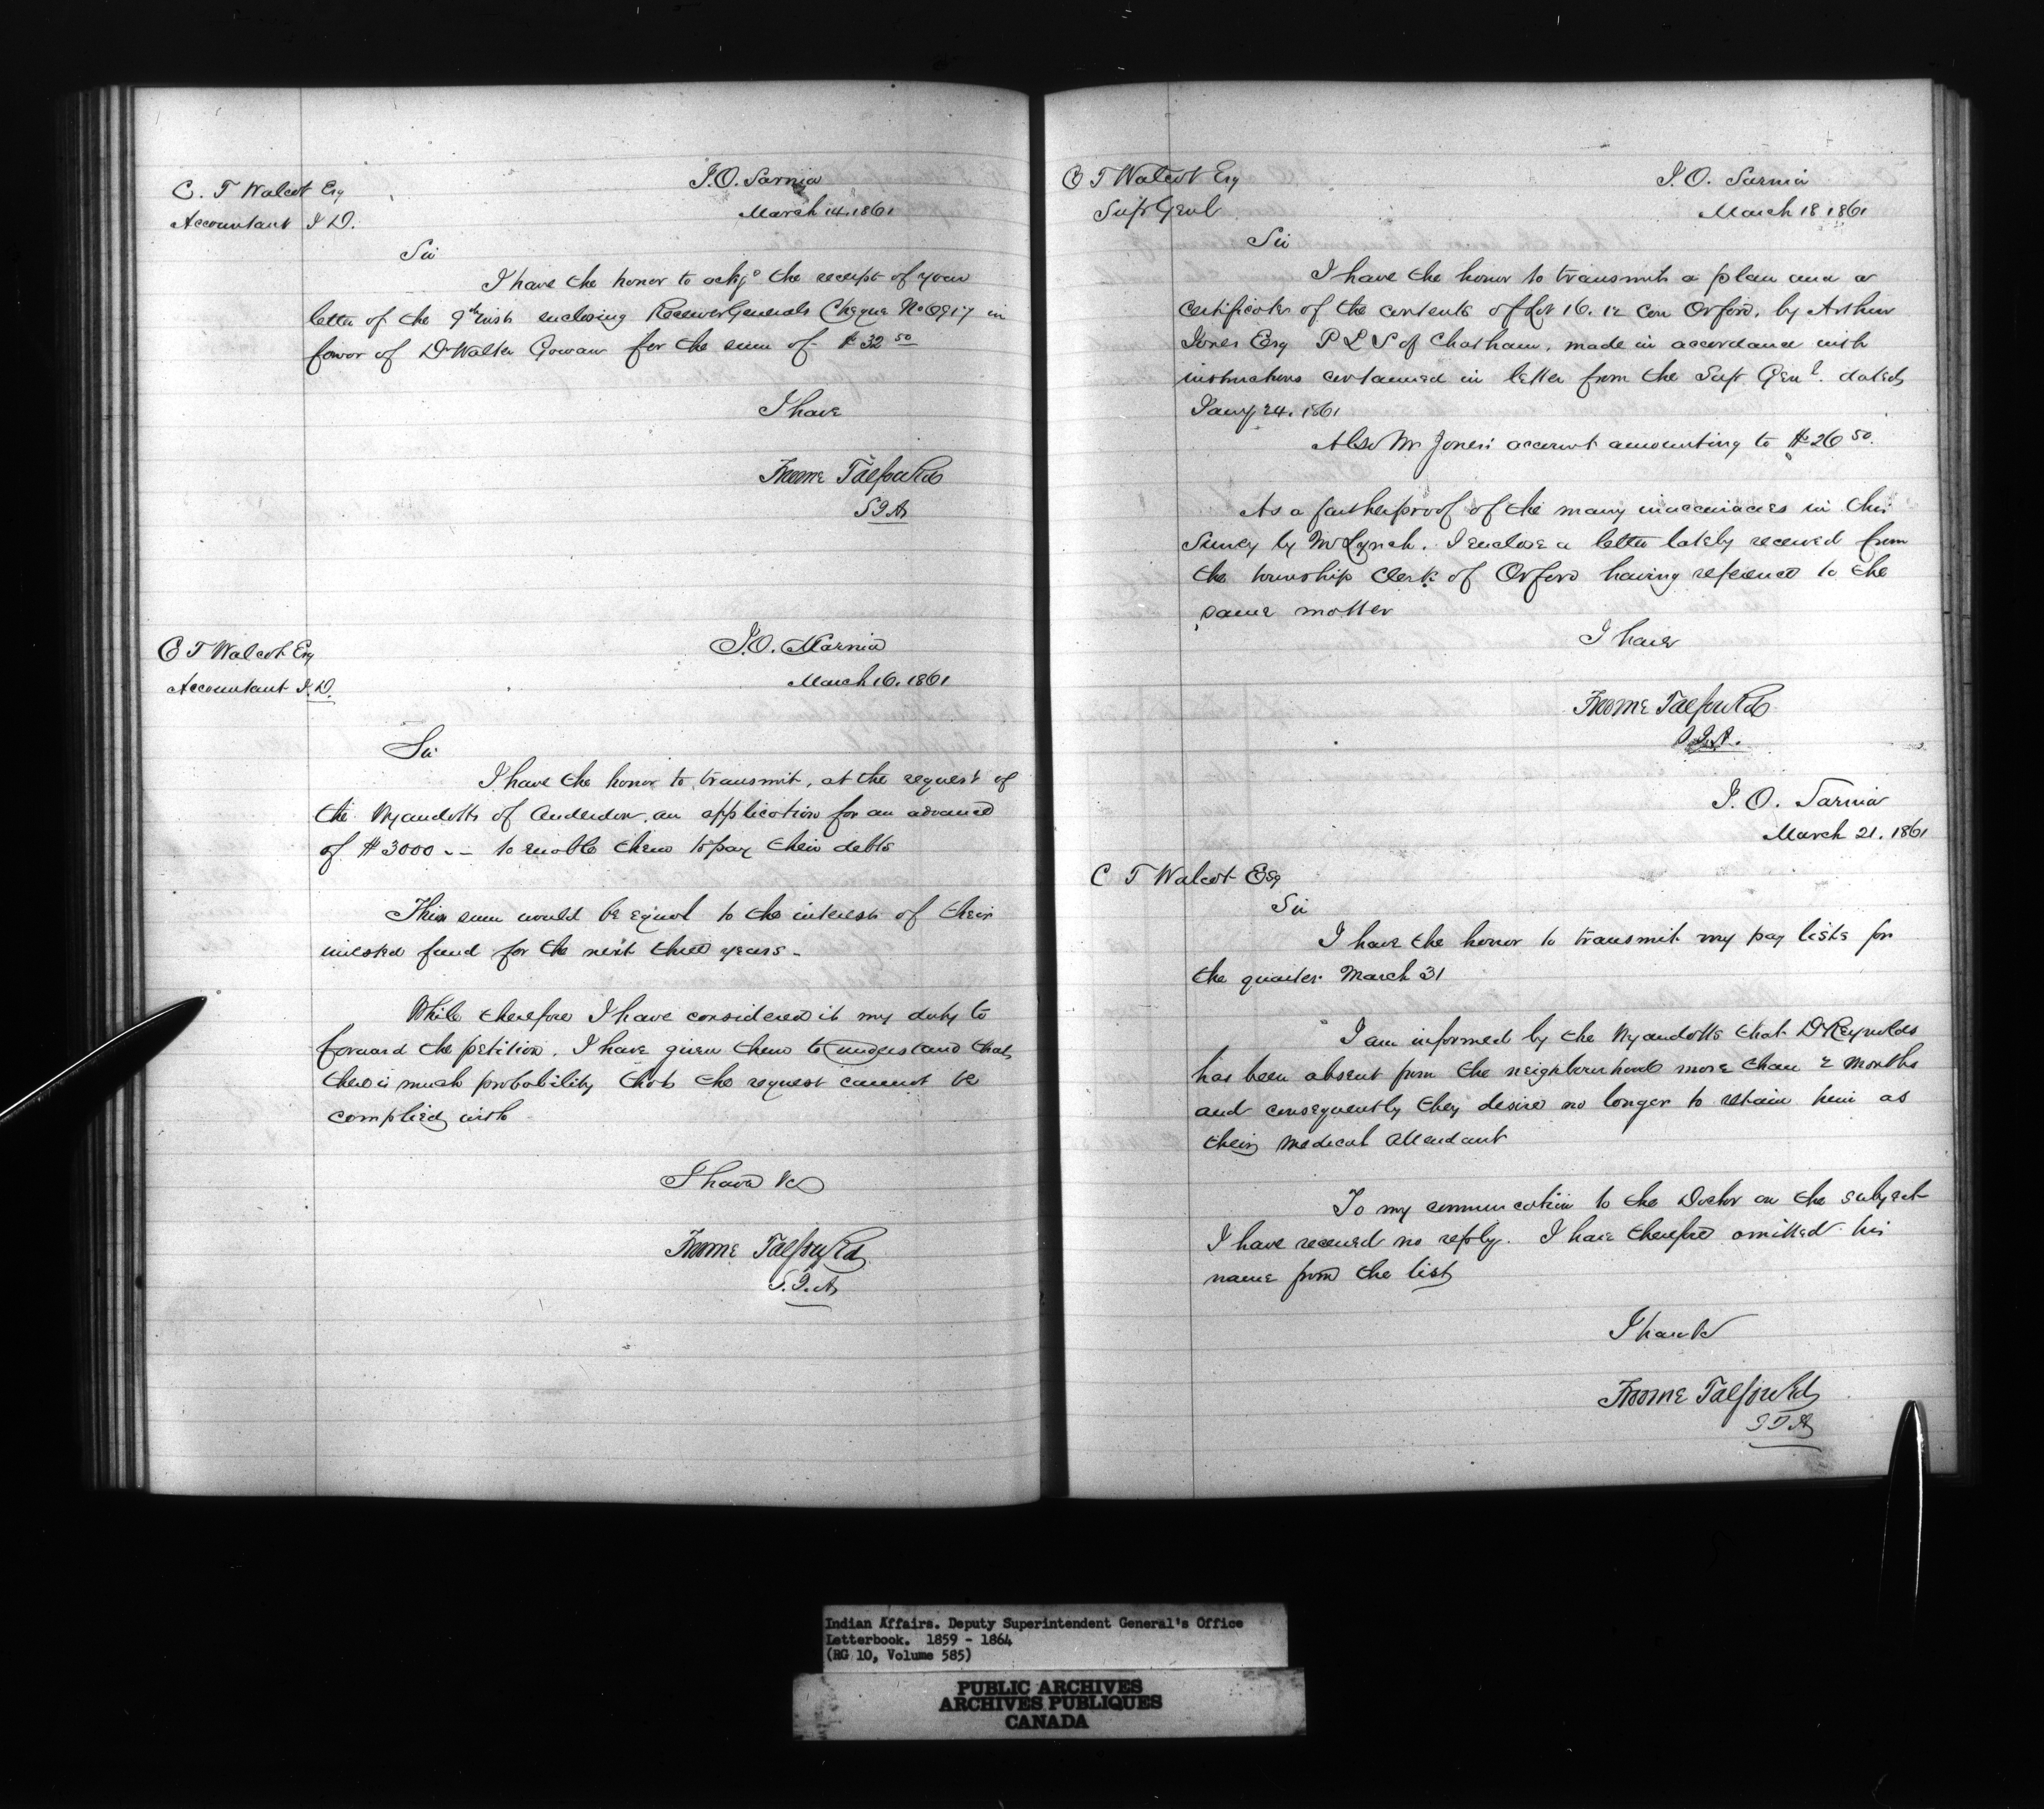 C. T Walcot Esq
Accountant I D.
I.O. Sarnia
March 14. 1861
Sir
I have the honor to ackgᵉ the receipt of your
letter of the 9th inst enclosing Receiver Generals Cheque No 6917 in
favor of Dr Walter Gowan for the sum of $ 32 50
I have
Froome Talfourd
S I A
C T Walcot Esq
Accountant I. D.
I.O. Sarnia
March 16. 1861
Sir
I have the honor to transmit, at the request of
the Wyandotts of Anderdon, an application for an advance
of $ 3000 -- to enable them to pay their debts
This sum would be equal to the interest of their
invested fund for the next three years -
While therefore I have considered it my duty to
forward the petition. I have given them to understand that
there is much probability that the request cannot be
complied with
I have &c
Froome Talfourd
S. I. A
C T Walcot Esq
Supt Genl
I. O. Sarnia
March 18 1861
Sir
I have the honor to transmit a plan and a
certificate of the contents of Lot 16. 12 Con Orford, by Arthur
Jones Esq P L S of Chatham, made in accordance with
instructions contained in letter from the Supt Genl. dated
Jany 24. 1861
Also Mr Jones' account amounting to $ 26 50.
As a further proof of the many inaccuracies in the
Survey by Mr Lynch. I enclose a letter lately received from
the township Clerk of Orford having reference to the
same matter
I have
Froome Talfourd
S.I.A.
I. O. Sarnia
March 21. 1861
C T Walcot Esq
Sir
I have the honor to transmit my pay lists for
the quarter March 31
I am informed by the Wyandotts that Dr Reynolds
has been absent from the neighbourhood more than 2 months
and consequently they desire no longer to retain him as
their medical attendant
To my communication to the Doctor on the subject
I have received no reply. I have therefore omitted his
name from the list
I have &c
Froome Talfourd
S I A
Indian Affairs. Deputy Superintendent General's Office
Letterbook. 1859 - 1864
(RG 10, Volume 585)
PUBLIC ARCHIVES
ARCHIVES PUBLIQUES
CANADA